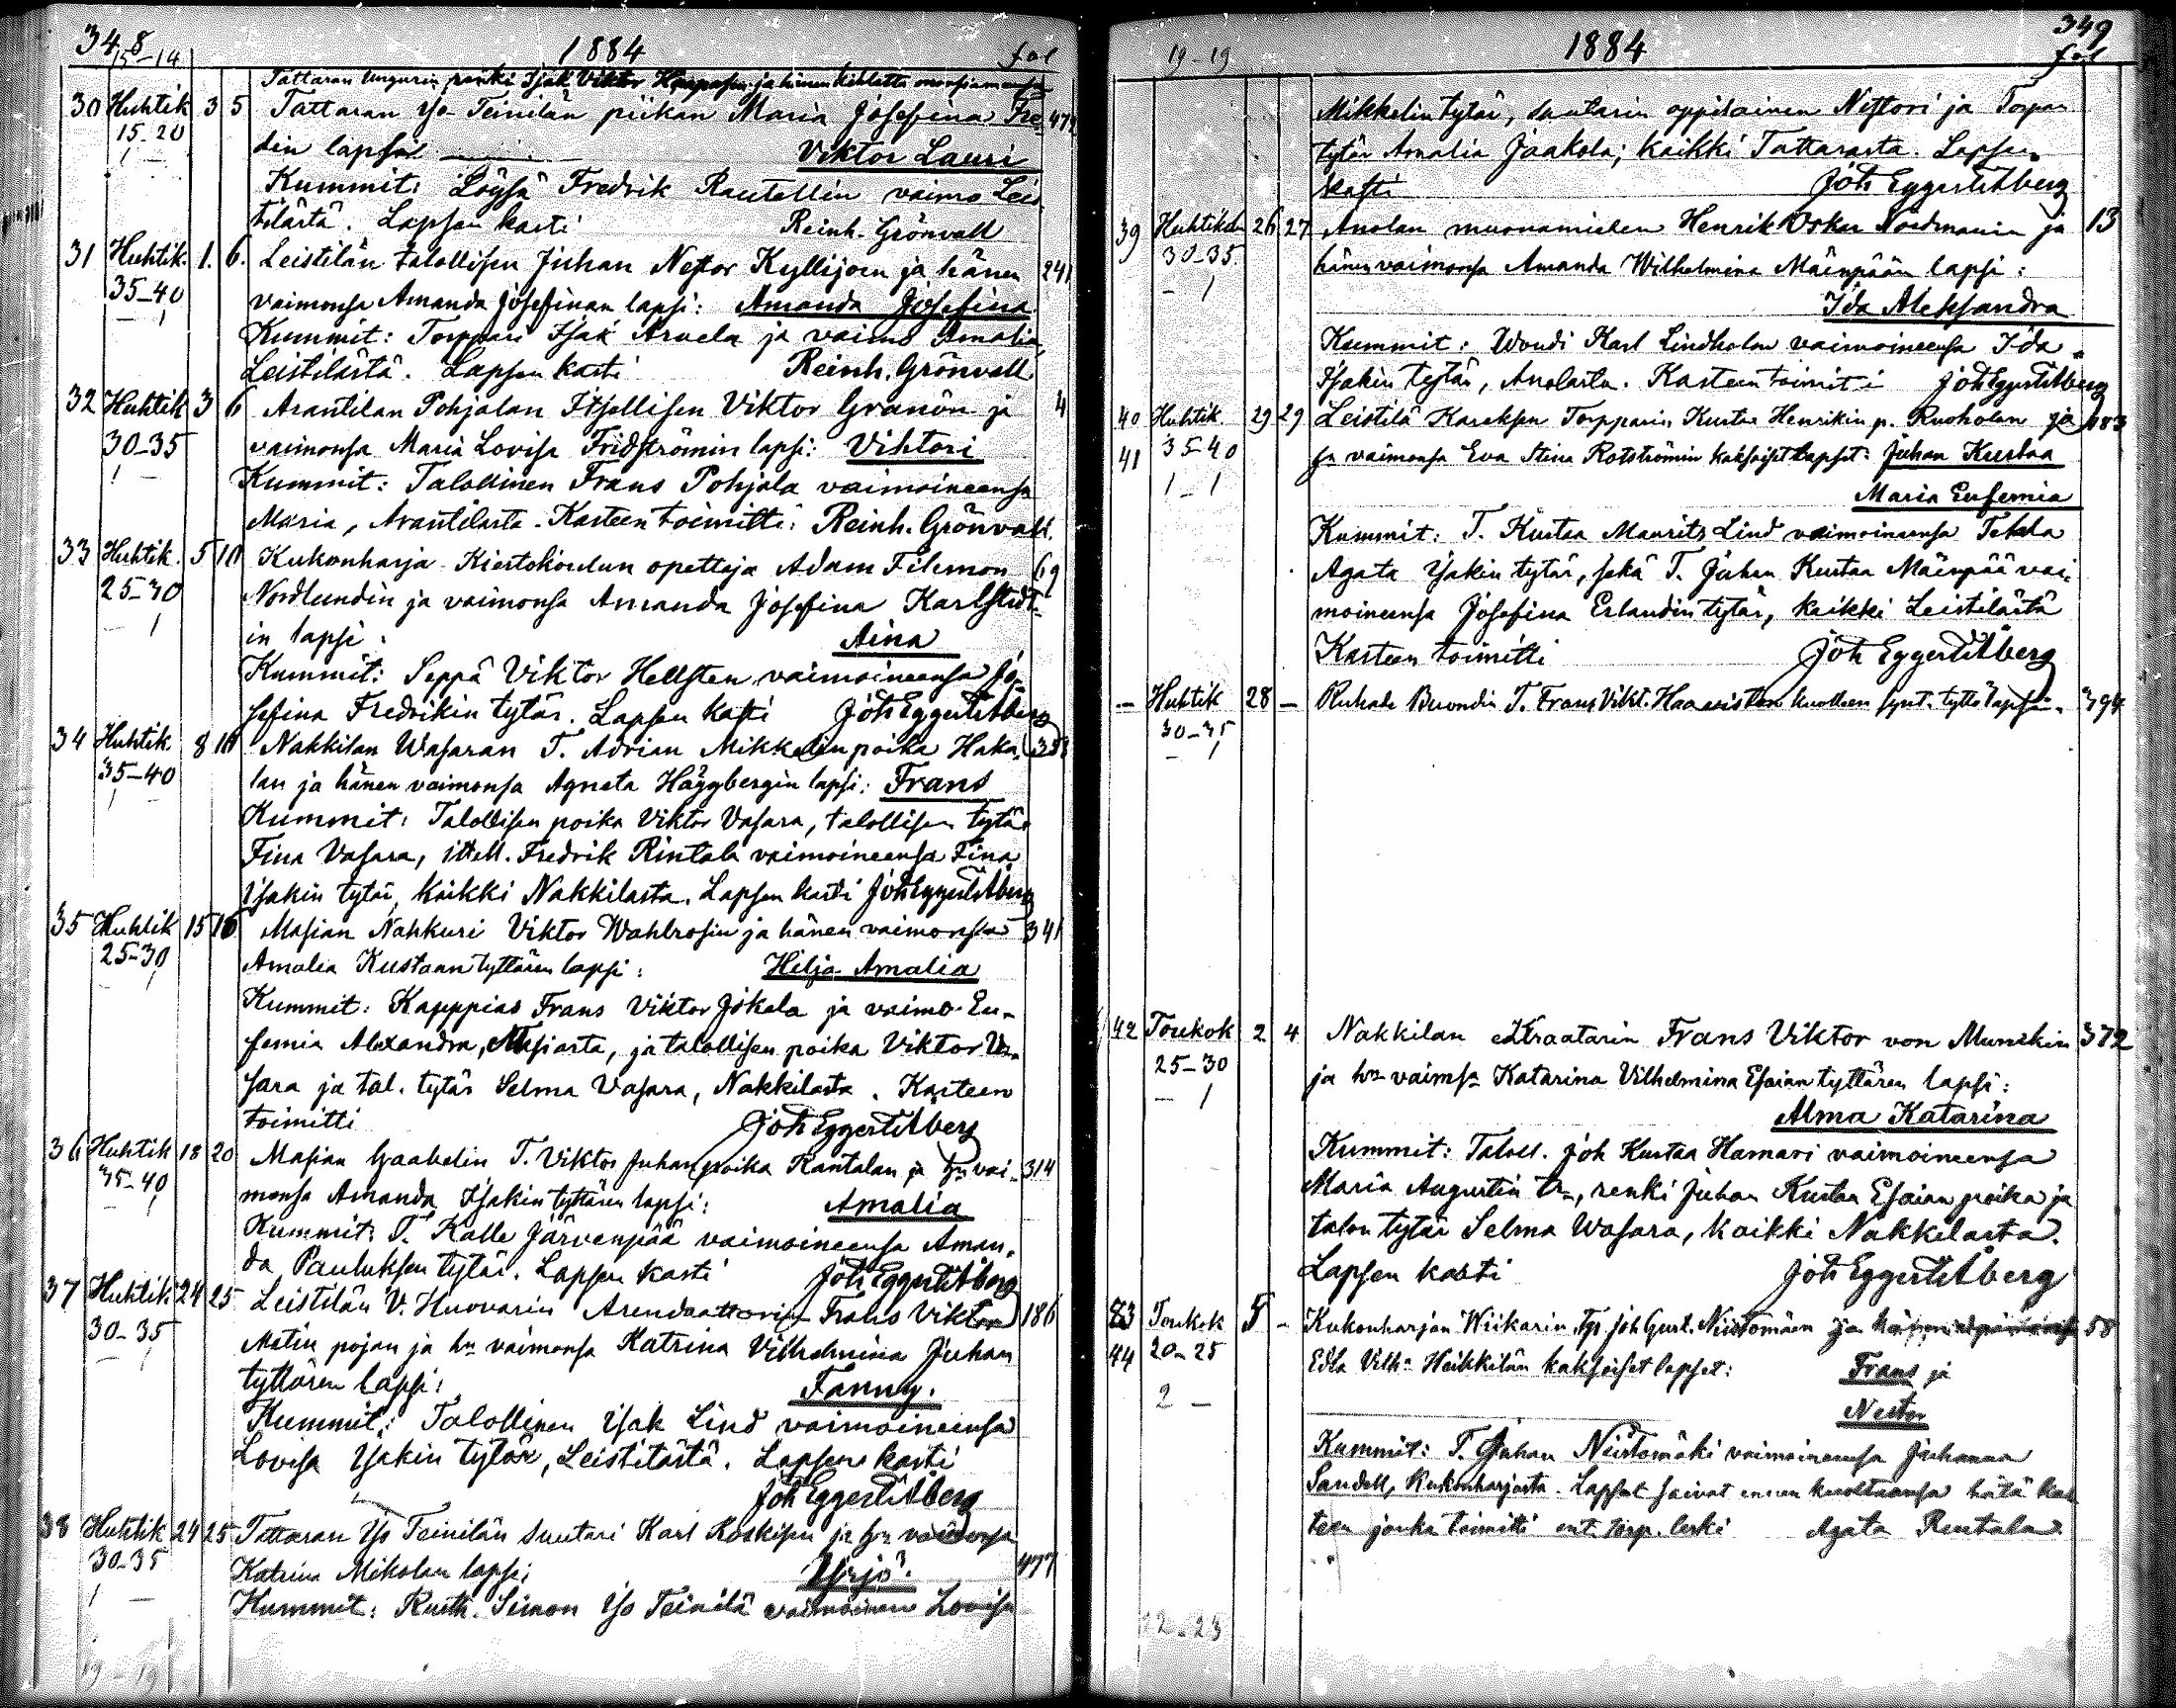 348
15-14
1884
fol
Tattaran Ungurin renki Isak Viktor Haapasen ja hänen kihlattu
30 Huhtik 3 5 Tattaran Yso-Teinilän piikan Maria Josefina Fre-
15-20
din lapsi Viktor Lauri
Kummit: Löysä Fredrik Rautellin vaimo Leis-
tilästä. Lapsen kasti Reinh. Grönvall
31 Huhtik. 1. 6. Leistilän talollisen Juhan Nestor Kyllijoen ja hänen 241
35-40 vaimonsa Amanda Josefinan lapsi: Amanda Josefina
- 1
Kummit: Torppari Isak Arvela ja vaimo Amalia,
Leistilästä. Lapsen kasti Reinh. Grönvall
32 Huhtik 3 6 Arantilan Pohjalan Itsellisen Viktor Granön ja 4
30-35 vaimonsa Maria Lovisa Fridströmin lapsi: Vihtori
1 -
Kummit: Talollinen Frans Pohjala vaimoineensa
Maria, Arantilasta. Kasteen toimitti: Reinh. Grönvall.
33 Huhtik. 5 10 Kukonharja Kiertokoulun opettaja Adam Filemon 69
25-30 Nordlundin ja vaimonsa Amanda Josefina Karlstedt-
- 1 in lapsi: Aina
Kummit: Seppä Viktor Hellsten vaimoineensa Jo-
sefina Fredrikin tytär. Lapsen kasti Joh Eggert Åberg
34 Huhtik 8 10 Nakkilan Wasaran T. Adrian Mikkelin poika Haka- 358
35-40 lan ja hänen vaimonsa Agneta Häggbergin lapsi: Frans
1 -
Kummit: Talollisen poika Viktor Vasara, talollisen tytär
Fina Vasara, itsell. Fredrik Rintala vaimoineensa Fina
Isakin tytär, kaikki Nakkilasta. Lapsen kasti Joh Eggert Åberg
35 Huhtik 15 16 Masian Nahkuri Viktor Wahlrosin ja hänen vaimonsa 341
25-30 Amalia Kustaan tyttären lapsi: Hilja Amalia
- 1
Kummit: Kapppias Frans Viktor Jokala ja vaimo Eu-
femia Alexandra, Masiasta, ja talollisen poika Viktor Va-
sara ja tal. tytär Selma Vasara, Nakkilasta. Kasteen
toimitti Joh Eggert Åberg
36 Huhtik 18 20 Masian Gaabelin T. Viktor Juhanpoika Rantalan ja hn vai- 314
35-40 monsa Amanda Isakin tyttären lapsi: Amalia
- 1
Kummit: T. Kalle Järvenpää vaimoineensa Aman-
da Pauluksen tytär. Lapsen kasti Joh Eggert Åberg
37 Huhtik 24 25 Leistilän V. Huovarin Arendaattorin Frans Viktor 186
30-35 Matin pojan ja hn vaimonsa Katrina Vilhelmina Juhan
- 1 tyttären lapsi: Fanny.
Kummit: Talollinen Isak Lind vaimoineensa
Lovisa Isakin tytär, Leistilästä. Lapsen kasti
Joh Eggert Åberg
38 Huhtik 24 25 Tattaran Yso Teinilän suutari Karl Koskisen ja hn vaimonsa
30-35 Katrina Mikolan lapsi: Yrjö. 477
1 -
Kummit: Rusth. Simon Yso Teinilä vaimoineen Lovisa
19-19

349
19-19
1884
fol
Mikkelin tytär, suutarin oppilainen Nestori ja Torpan
tytär Amalia Jaakola; kaikki Tattarasta. Lapsen
kasti Joh Eggert Åberg
39 Huhtik 26 27 Anolan muonamiehen Henrik Oskar Nordmanin ja 13
30-35 hänen vaimonsa Amanda Wilhelmina Mäenpään lapsi:
- 1 Ida Aleksandra
Kummit: Woudi Karl Lindholm vaimoineensa Ida
Isakin tytär, Anolasta. Kasteen toimitti Joh Eggert Åberg
40 Huhtik. 29 29 Leistilä Kareksen Torpparin Kustaa Henrikin p. Ruoholan ja 183
41 35-40 ja vaimonsa Eva Stina Rotströmin kaksoiset lapset: Juhan Kustaa
1 - 1 Maria Eufemia
Kummit: T. Kustaa Maurits Lind vaimoineensa Tekla
Agata Isakin tytär, sekä T. Juhan Kustaa Mäenpää vai-
moineensa Josefina Erlandin tytär, kaikki Leistilästä
Kasteen toimitti Joh Eggert Åberg
- Huhtik 28 - Ruhade Buondin T. Frans Vikt. Haaviston kuolleen synt. tyttölapsi. 394
30-35
- 1
42 Toukok 2 4 Nakkilan Kraatarin Frans Viktor von Munckin 372
25-30 ja hn vaimsa Katarina Vilhelmina Esaian tyttären lapsi:
- 1 Alma Katarina
Kummit: Taloll. Joh Kustaa Hamari vaimoineensa
Maria Augustin tr., renki Juhan Kustaa Esaian poika ja
talon tytär Selma Wasara, kaikki Nakkilasta.
Lapsen kasti Joh Eggert Åberg
43 Toukok 5 - Kukonharjan Wiikarin Joh Gust. Niistomäen ja 58
44 20-25 Edla Vilh:a Heikkilän kaksoiset lapset: Frans ja
2 - Nestor
Kummit: T. Juhan Niistomäki vaimoineensa Juhanna
Sandell, Kukonharjasta. Lapset saivat ennen kuoltuansa hätä kas
teen jonka toimitti ent. torp. leski Agata Rentala
22-23